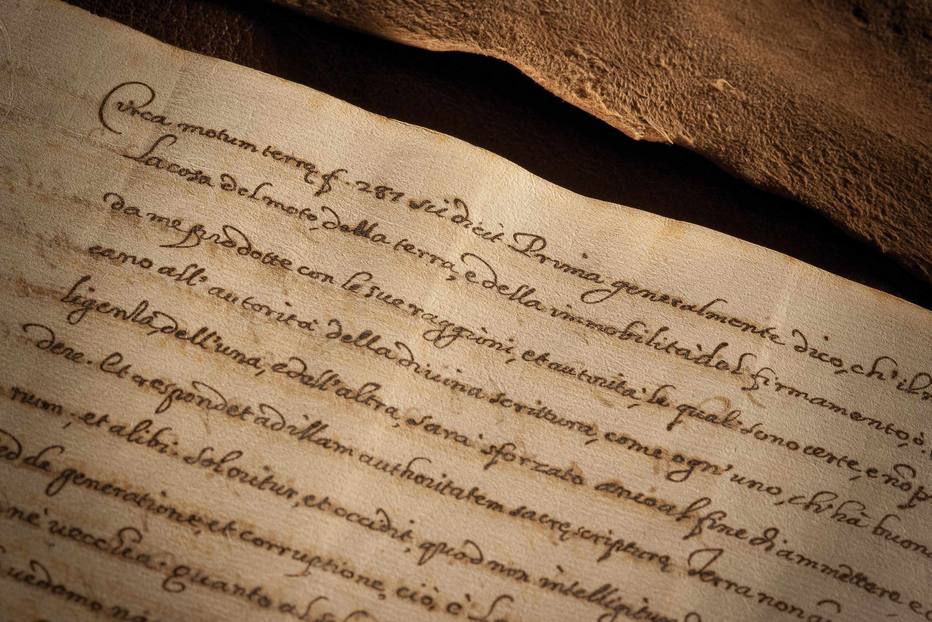 Circa motum terrę f. 287 sic dicit Prima generalmente dico, ch'il
La cosa del moto della terra, e della immobilità del firmamento,
da me prodotte con le sue raggioni, et autorità, le quali sono certe, e nõ p
cano all'autorità della divina scrittura, come ogn'uno, ch'hà buon
ligenza dell'una, e dell'altra, sarà sforzato anco al fine di ammettere e
dere. Et respondet ad illam authoritatem sacrę scripturę Terra non
num, et alibi. Sol oritur, et occidit, quod non intelligitur
de generatione, et corruptione, ciò, è
nè vecchia. quanto al